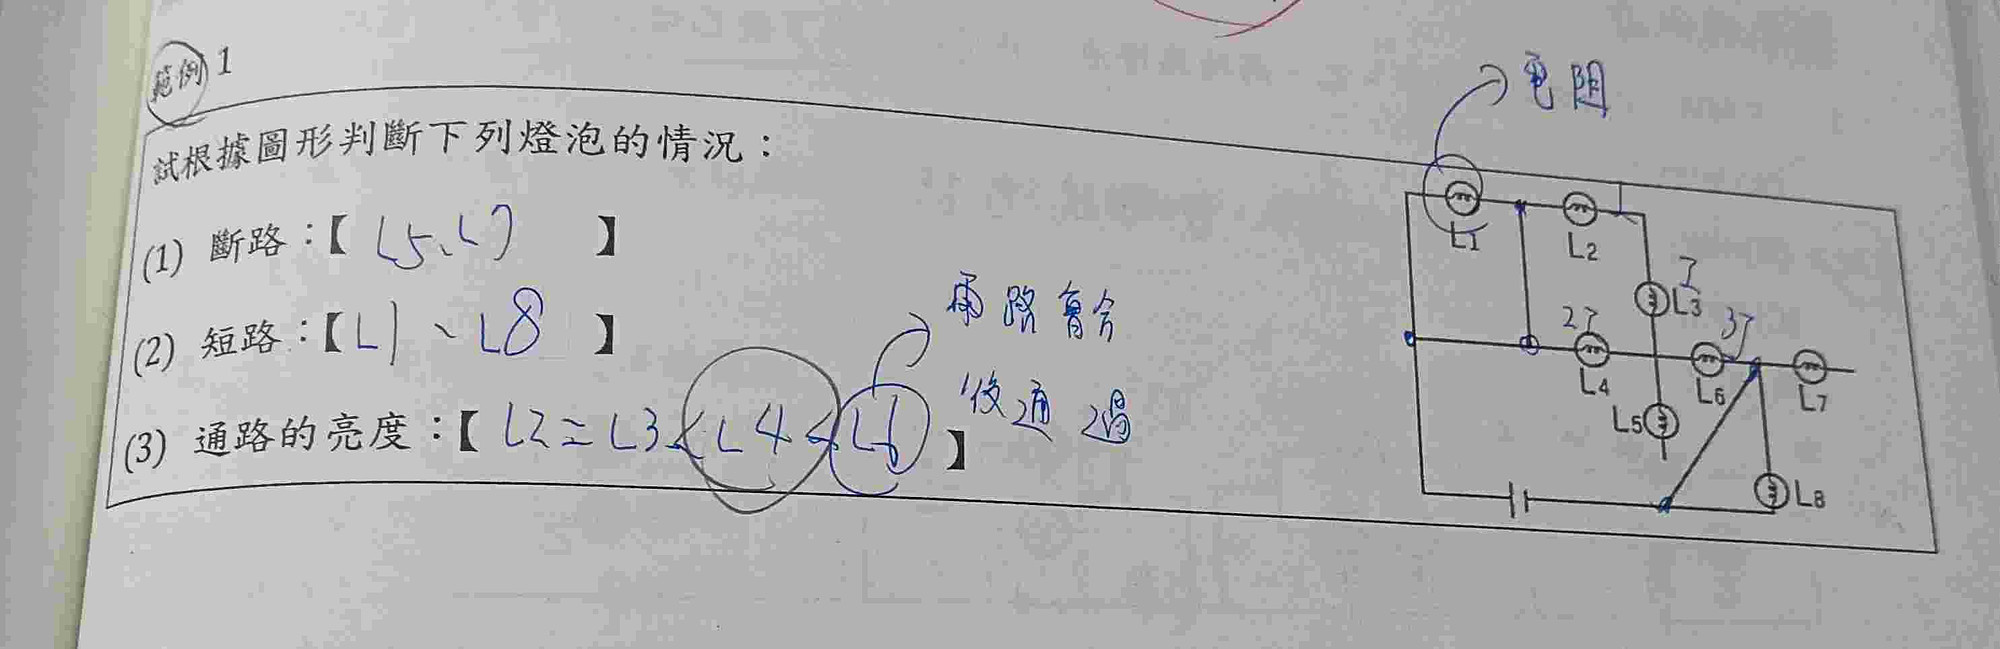 範例 1
電阻
試根據圖形判斷下列燈泡的情況：
(1) 斷路：【 L5、L7 】
(2) 短路：【 L1、L8 】
兩路會合
後通過
(3) 通路的亮度：【 L2=L3<L4<L6 】
L1
L2
I
L3
2I
L4
3I
L6
L7
L5
L8